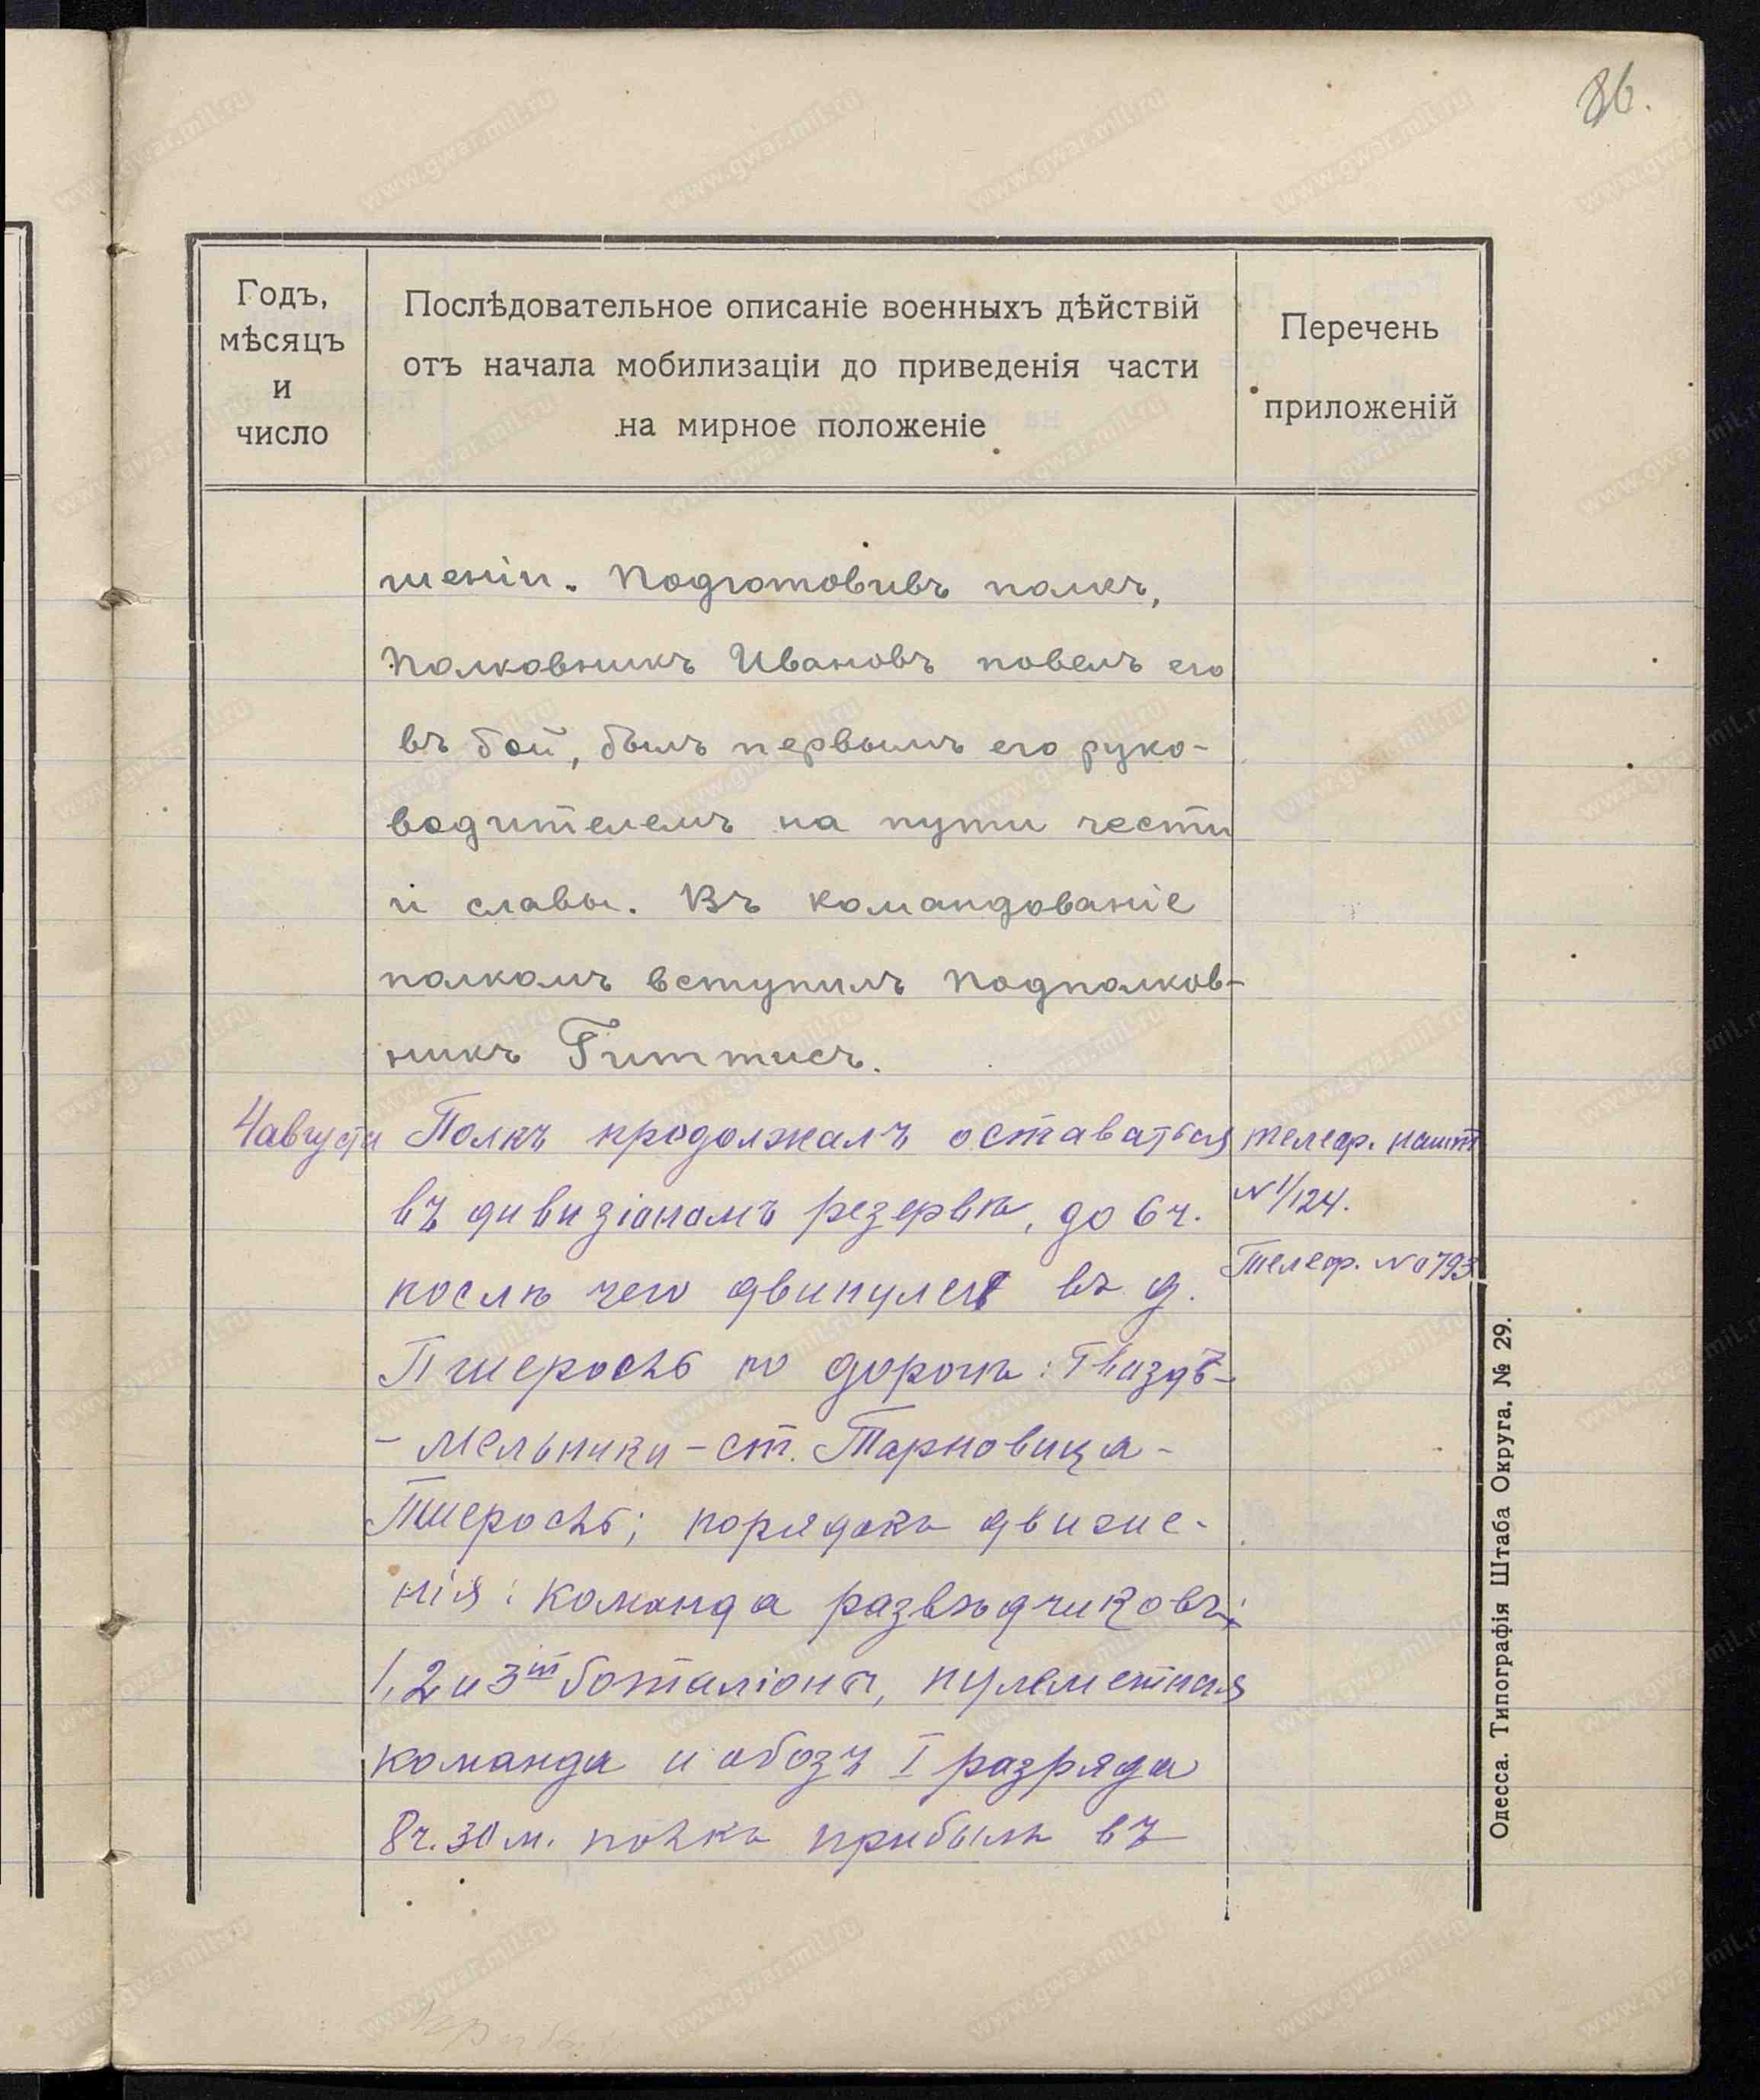 86.
Годъ,
мѣсяцъ
и
число
Послѣдовательное описаніе военныхъ дѣйствій
отъ начала мобилизаціи до приведенія части
на мирное положеніе
Перечень
приложеній
шеніи. Подготовивъ полкъ,
Полковникъ Ивановъ повелъ его
въ бой, былъ первымъ его руко-
водителемъ на пути чести
и славы. Въ командованіе
полкомъ вступилъ Подполков-
никъ Гиттисъ.
4 августа Полкъ продолжалъ оставаться
телеф.
въ дивизіономъ резервѣ, до 6 ч.
№ 1/124.
послѣ чего двинулся въ д.
Телеф. № 793
Пшеросль по дорогѣ: Гвиздъ-
- Мельники - ст. Тарновица -
Пшеросль; порядокъ движе-
нія: команда развѣдчиковъ;
1, 2 и 3й баталіоны, пулеметная
команда и обозъ I разряда
8 ч. 30 м. полкъ прибылъ въ
Одесса. Типографія Штаба Округа, № 29.
www.gwar.mil.ru